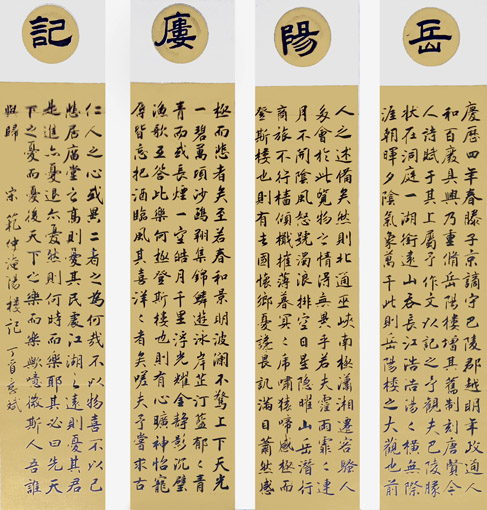 岳
慶曆四年春滕子京謫守巴陵郡越明年政通人
和百廢具興乃重脩岳陽樓增其舊制刻唐賢今
人詩賦于其上屬予作文以記之予觀夫巴陵勝
狀在洞庭一湖銜遠山吞長江浩浩湯〻橫無際
涯朝暉夕陰氣象萬千此則岳陽樓之大觀也前
陽
人之述備矣然則北通巫峽南極瀟湘遷客騷人
多會於此覽物之情得無異乎若夫霪雨霏〻連
月不開陰風怒號濁浪排空日星隱曜山岳潛行
商旅不行檣傾檝摧薄暮冥〻虎嘯猿啼感極而
登斯樓也則有去國懷鄉憂讒畏譏滿目蕭然感
廔
極而悲者矣至若春和景明波瀾不驚上下天光
一碧萬頃沙鷗翔集錦鱗遊泳岸芷汀蘭郁〻青
青而或長煙一空皓月千里浮光耀金静影沉璧
漁歌互答此樂何極登斯樓也則有心曠神怡寵
辱皆忘把酒臨風其喜洋〻者矣嗟夫予嘗求古
記
仁人之心或異二者之為何哉不以物喜不以己
悲居廟堂之高則憂其民處江湖之遠則憂其君
是進亦憂退亦憂然則何時而樂耶其必曰先天
下之憂而憂後天下之樂而樂歟噫微斯人吾誰
與歸 宋 範仲淹陽樓記 丁酉 斌